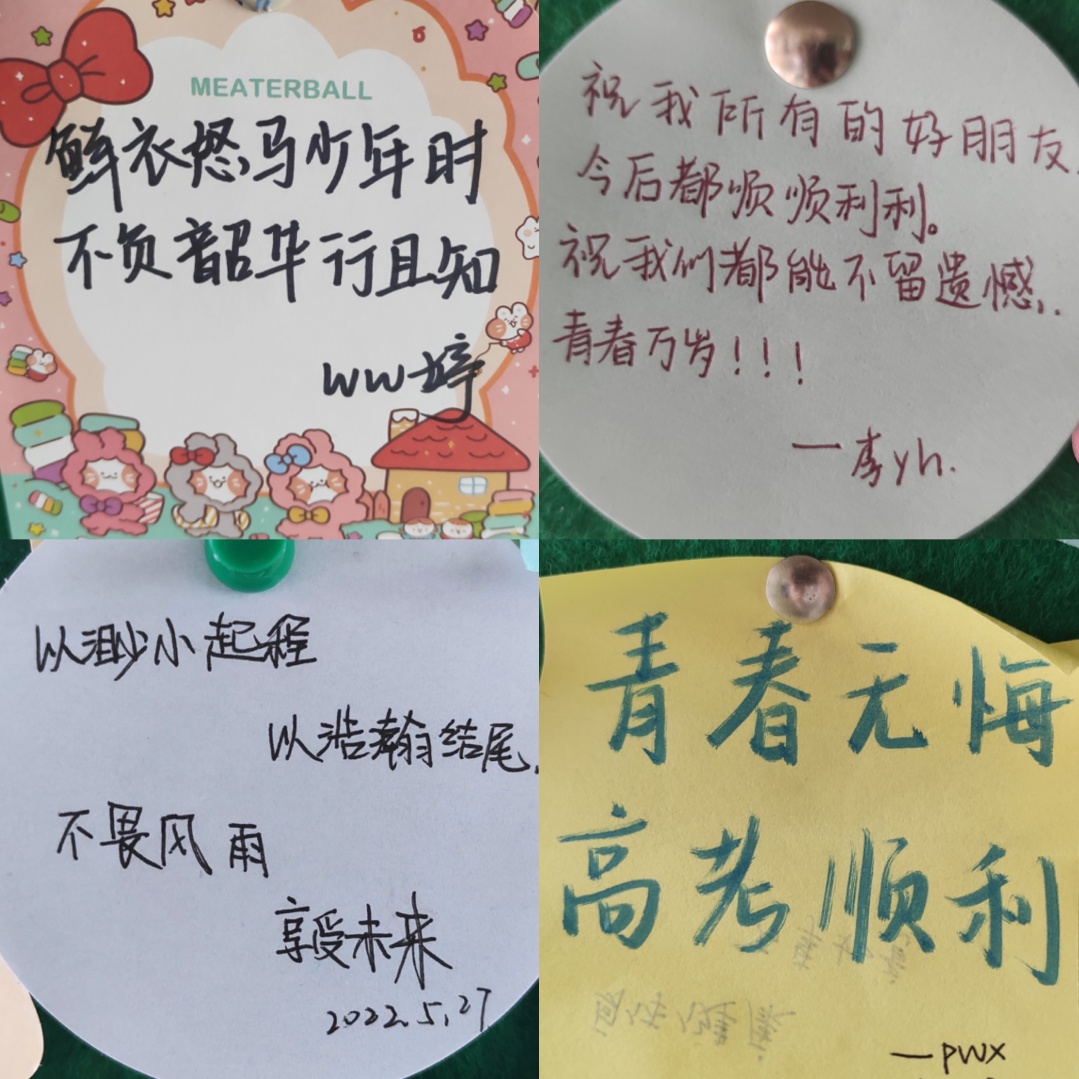 MEATERBALL
鲜衣怒马少年时
不负韶华行且知
ww婷
祝我所有的好朋友
今后都顺顺利利。
祝我们都能不留遗憾,..
青春万岁!!!
一李yh.
以渺小起程
以浩瀚结尾.
不畏风雨
享受未来
2022.5.27
青春无悔
高考顺利
一PWX